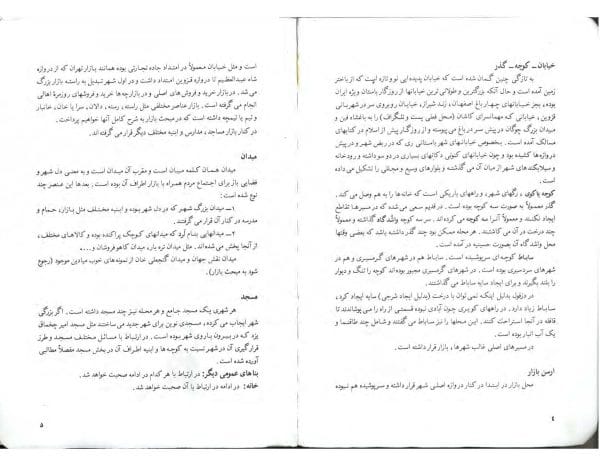 خیابان - کوچه - گذر
به تازگی چنین گمان شده است که خیابان پدیده‌ایی نو و تازه است که از باختر
زمین آمده است و حال آنکه بزرگترین و طولانی‌ترین خیابانها از روزگار باستان ویژه ایران
بوده، بجز خیابانهای چهار باغ اصفهان، زند شیراز، خیابان روبروی سر در شهربانی
قزوین، خیابانی که مهمانسرای کاشان (محل فعلی پست و تلگراف) را به باغشاه فین و
میدان بزرگ چوگان در پیش سر در باغ می‌پیوسته و از روزگار پیش از اسلام در کتابهای
مسالک آمده است. بخصوص خیابانهای شهر باستانی ری که در ربض شهر و در پیش
دروازه‌ها کشیده بود و چون خیابانهای کنونی دکانهای بسیاری در دو سو داشته و رودخانه
و سیلابگاههای شهر از میان آن می‌گذشته و بلوارهای وسیع و همگانی را تشکیل می‌داده
است.
کوچه یا کوی، رگهای شهر، و راههای باریکی است که خانه‌ها را به هم وصل می‌کند.
گذر معمولاً به صورت سه کوچه بوده است. در قدیم سعی می‌شده که در مسیرها تقاطع
ایجاد نکنند و معمولاً آنرا سه کوچه می‌کرده‌اند. سر سه کوچه واشدگاه داشته و معمولاً
چند درخت در آن می‌کاشتند. هر محله ممکن بود چند گذر داشته باشد که بعضی وقتها
محل واشدگاه آن بصورت حسینیه در آمده است.
ساباط کوچه‌ای سرپوشیده است. ساباط هم در شهرهای گرمسیری و هم در
شهرهای سردسیری بوده است. در شهرهای گرمسیری مجبور بوده‌اند کوچه را تنگ و دیوار
را بلند بگیرند و برای ایجاد سایه ساباط می‌گذاشتند.
در دزفول، بدلیل اینکه نمی‌توان با درخت (بدلیل ایجاد شرجی) سایه ایجاد کرد،
ساباط زیاد دارد. در راههای کویری چون آبادی نبوده قسمتی از راه را می‌پوشاندند تا
قافله در آنجا استراحت کنند. این محلها را نیز ساباط می‌گفتند و شامل چند طاقنما و
یک آب انبار بوده است.
در مسیرهای اصلی غالب شهرها، بازار قرار داشته است.
ارسن بازار
محل بازار در ابتدا در کنار دروازه اصلی شهر قرار داشته و سرپوشیده هم نبوده
٤
است و مثل خیابان معمولاً در امتداد جاده تجارتی بوده همانند بازار تهران که از دروازه
شاه عبدالعظیم تا دروازه قزوین امتداد داشت و در اول شهر تبدیل به راسته بازار بزرگ
می‌شد. در بازار خرید و فروش‌های اصلی و در بازارچه‌ها خرید و فروشهای روزمرهٔ اهالی
انجام می‌گرفته است. بازار عناصر مختلفی مثل راسته، رسته، دالان، سرا یا خان، خانبار
و تیم یا تیمچه داشته است که در مبحث بازار به شرح کامل آنها خواهیم پرداخت.
در کنار بازار مساجد، مدارس و ابنیه مختلف دیگر قرار می‌گرفته‌اند.
میدان
میدان همان کلمه میان است و مقرب آن میدان است و به معنی دل شهر و
فضایی باز برای اجتماع مردم همراه با بازار اطراف آن بوده است. بعدها این عناصر چند
نوع شده است:
۱ـ میدان بزرگ شهر که در دل شهر بوده و ابنیه مختلف مثل بازار، حمام و
مدرسه در کنار آن قرار می‌گرفتند.
۲ـ میدانهایی بنام لرد که میدانهای کوچک پراکنده بوده و کالاهای مختلف،
از آنجا پخش می‌شده‌اند. مثل میدان تره بار، میدان کاه‌فروشان و....
میدان نقش جهان و میدان گنجعلی خان از نمونه‌های خوب میادین موجود (رجوع
شود به مبحث بازار).
مسجد
هر شهری یک مسجد جامع و هر محله نیز چند مسجد داشته است. اگر بزرگی
شهر ایجاب می‌کرده، مسجدی نوین برای شهر جدید می‌ساختند مثل مسجد امیر چقماق
یزد که در بیرون باروی شهر بوده است. در ارتباط با مسائل مختلف مسجد و طرز
قرارگیری آن در شهر نسبت به کوچه‌ها و ابنیه اطراف آن در بخش مسجد مفصلاً مطالبی
آورده شده است.
بناهای عمومی دیگر: در ارتباط با هر کدام در ادامه صحبت خواهد شد.
خانه: در ادامه در ارتباط با آن صحبت خواهد شد.
٥